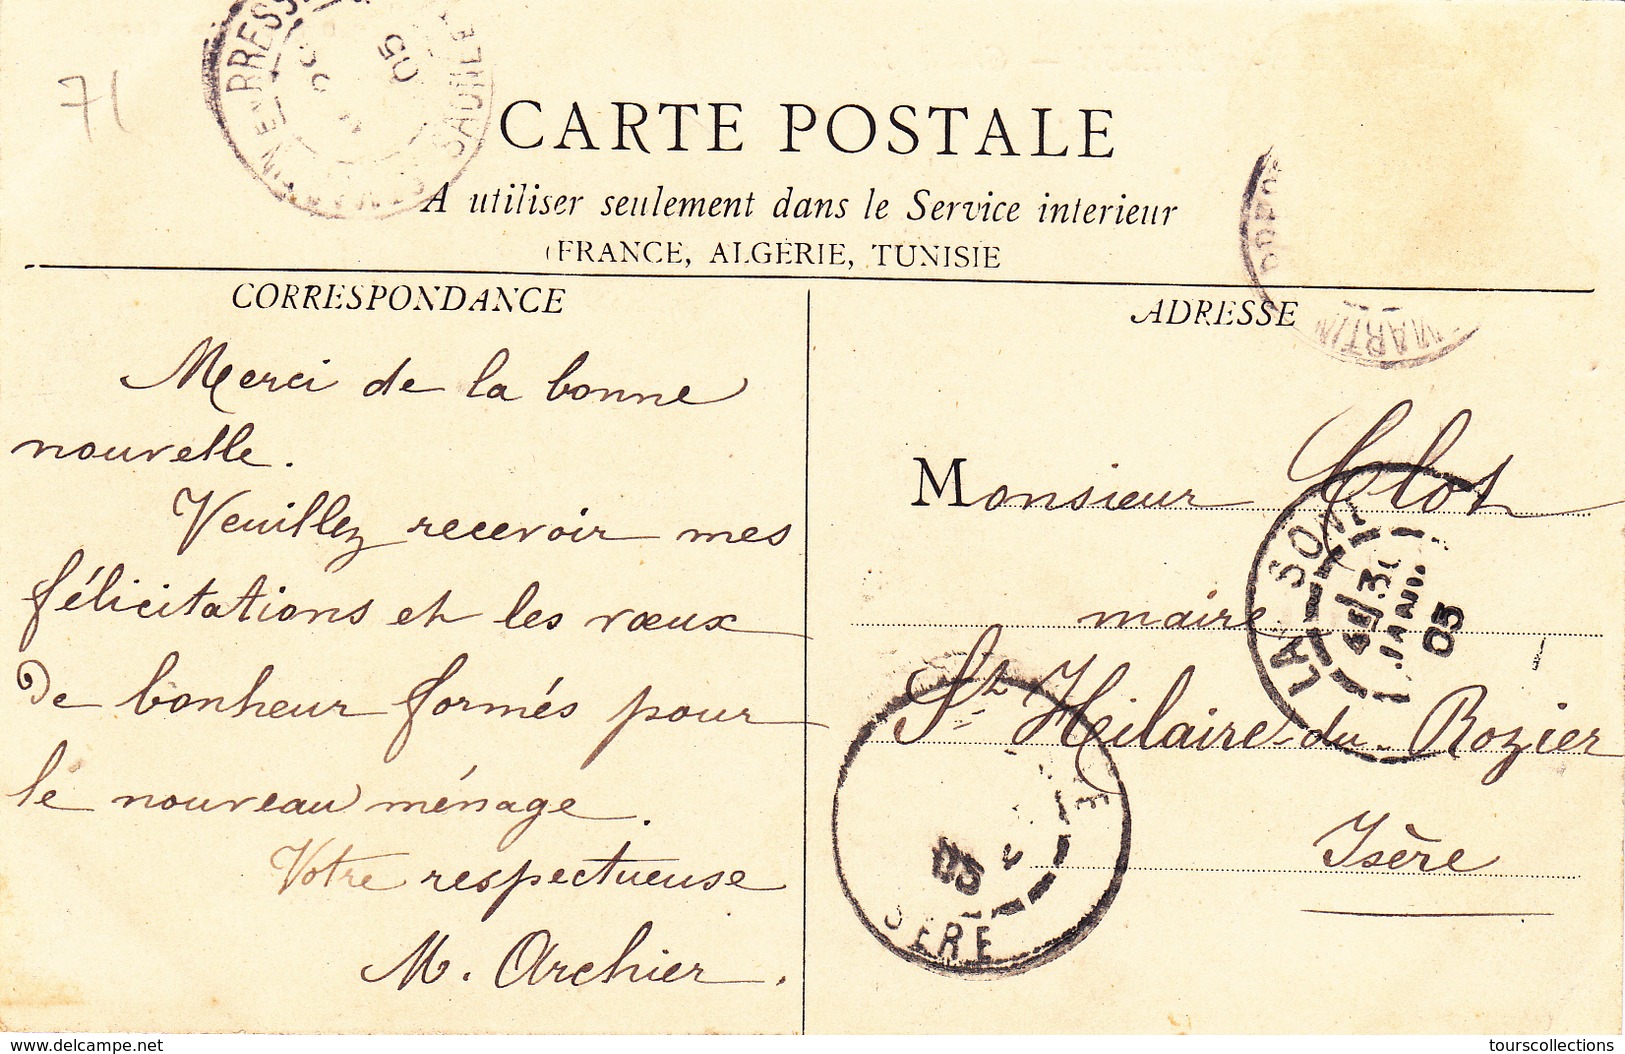 71
CARTE POSTALE
A utiliser seulement dans le Service interieur
(FRANCE, ALGÉRIE, TUNISIE
CORRESPONDANCE
Merci de la bonne
nouvelle.
Veuillez recevoir mes
félicitations et les vœux
de bonheur formés pour
le nouveau ménage.
Votre respectueuse
M. Archier.
ADRESSE
Monsieur Clot
maire
St Hilaire-du-Rozier
Isère
BRESSE
05
MARTIN
LA SONE
JANV.
05
05
SERE
www.delcampe.net
tourscollections